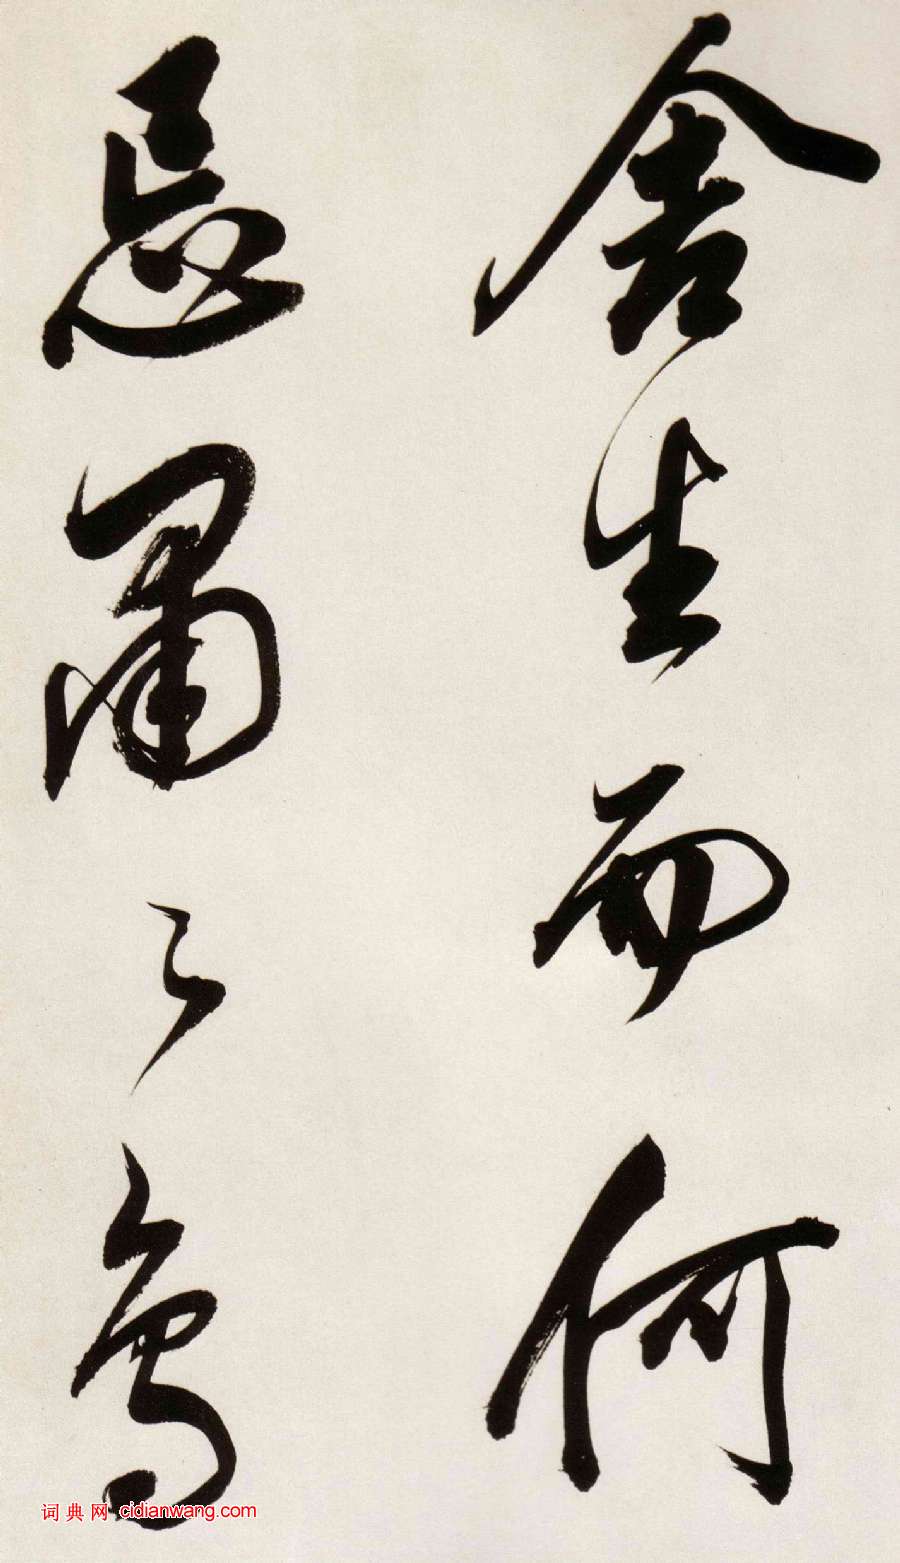 舍生而何
忌肅々烏
词典网 cidianwang.com